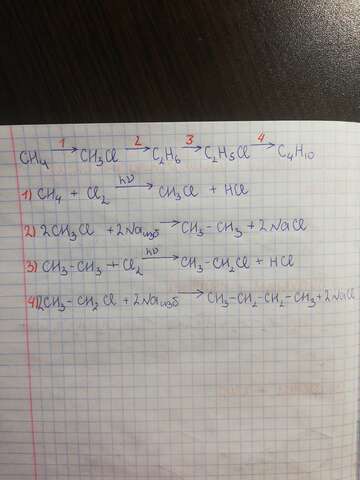 CH₄ —1→ CH₃Cl —2→ C₂H₆ —3→ C₂H₅Cl —4→ C₄H₁₀
1) CH₄ + Cl₂ —hν→ CH₃Cl + HCl
2) 2CH₃Cl + 2Naизб → CH₃-CH₃ + 2NaCl
3) CH₃-CH₃ + Cl₂ —hν→ CH₃-CH₂Cl + HCl
4) 2CH₃-CH₂Cl + 2Naизб → CH₃-CH₂-CH₂-CH₃ + 2NaCl